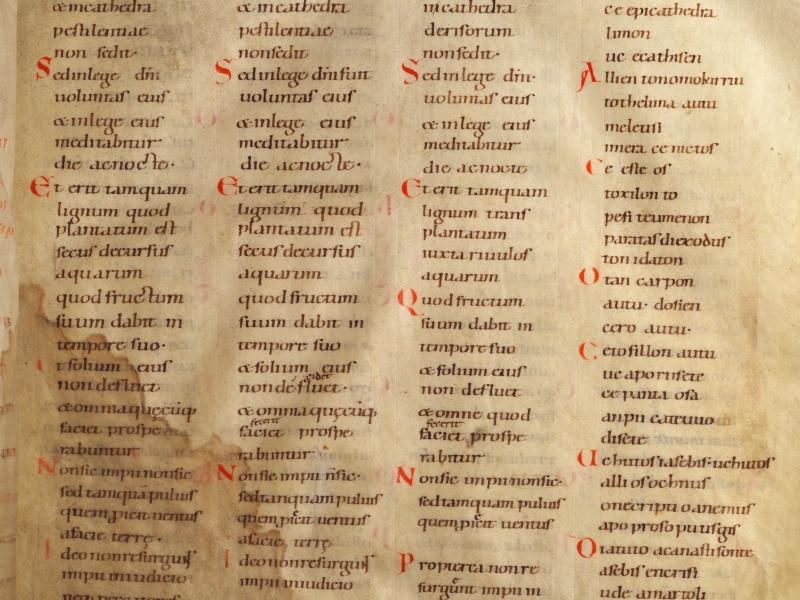 & in cathedra
pestilentiae
non sedit·
Sed in lege dñi
uoluntas eius
& in lege eius
meditabitur
die ac nocte·
Et erit tamquam
lignum quod
plantatum est
secus decursus
aquarum
quod fructum
suum dabit in
tempore suo·
t folium eius
non defluet
& omnia quęcũq;
faciet prospe
rabuntur
Non sic impii non sic
sed tamquã puluis
quem ꝓicit uentus
a facie terrę·
Ideo non resurgus̃
impii in iudicio
neq;
& in cathedra
pestilentiae
non sedit
Sed in lege dñi fuit
uoluntas eius
& in lege eius
meditabitur
die ac nocte·
Et erit tamquam
lignum quod
plantatum est
secus decursus
aquarum
quod fructum
suum dabit in
tempore suo
& folium eius
non defluet·
& omnia quęcũq;
fecerit
faciet prospe
rabuntur
Non sic impii ñ sic·
sed tanquam puluis
quem ꝓicit uentus
a facie terrę
Ideo non resurgus̃
impii in iudicio
in cathedra
derisorum
non sedit·
Sed in lege dñi·
uoluntas eius
& in lege eius
meditabitur·
die ac nocte
Et erit tamquam
lignum trans
plantatum
iuxta riuulos
aquarum
Quod fructum
suum dabit in
tempore suo
& folium eius
non defluet
& omne quod
fecerit
faciet prospe
rabitur
Non sic impii non sic·
sed tamquam puluis
quem ꝓicit uentus
Propterea non re
surgunt impii in
ce epi cathedra
limon
uc ecathisen
Allien to nomo kirriu
to thelima autu
meletisi
imera ce nictos
Ce este os
to xilon to
pefiteumenon
paratas diexodus
ton idaton
Otan carpon
autu· dosien
cero autu·
Ceto fillon autu
uc aporisete
ce panta osa
an pii
disete
Uchutos i asebis· uchutos
all i os o chnus
on ecripti o anemus
apo prosopu tis gis
O
asebis en crisi
ude amartoli